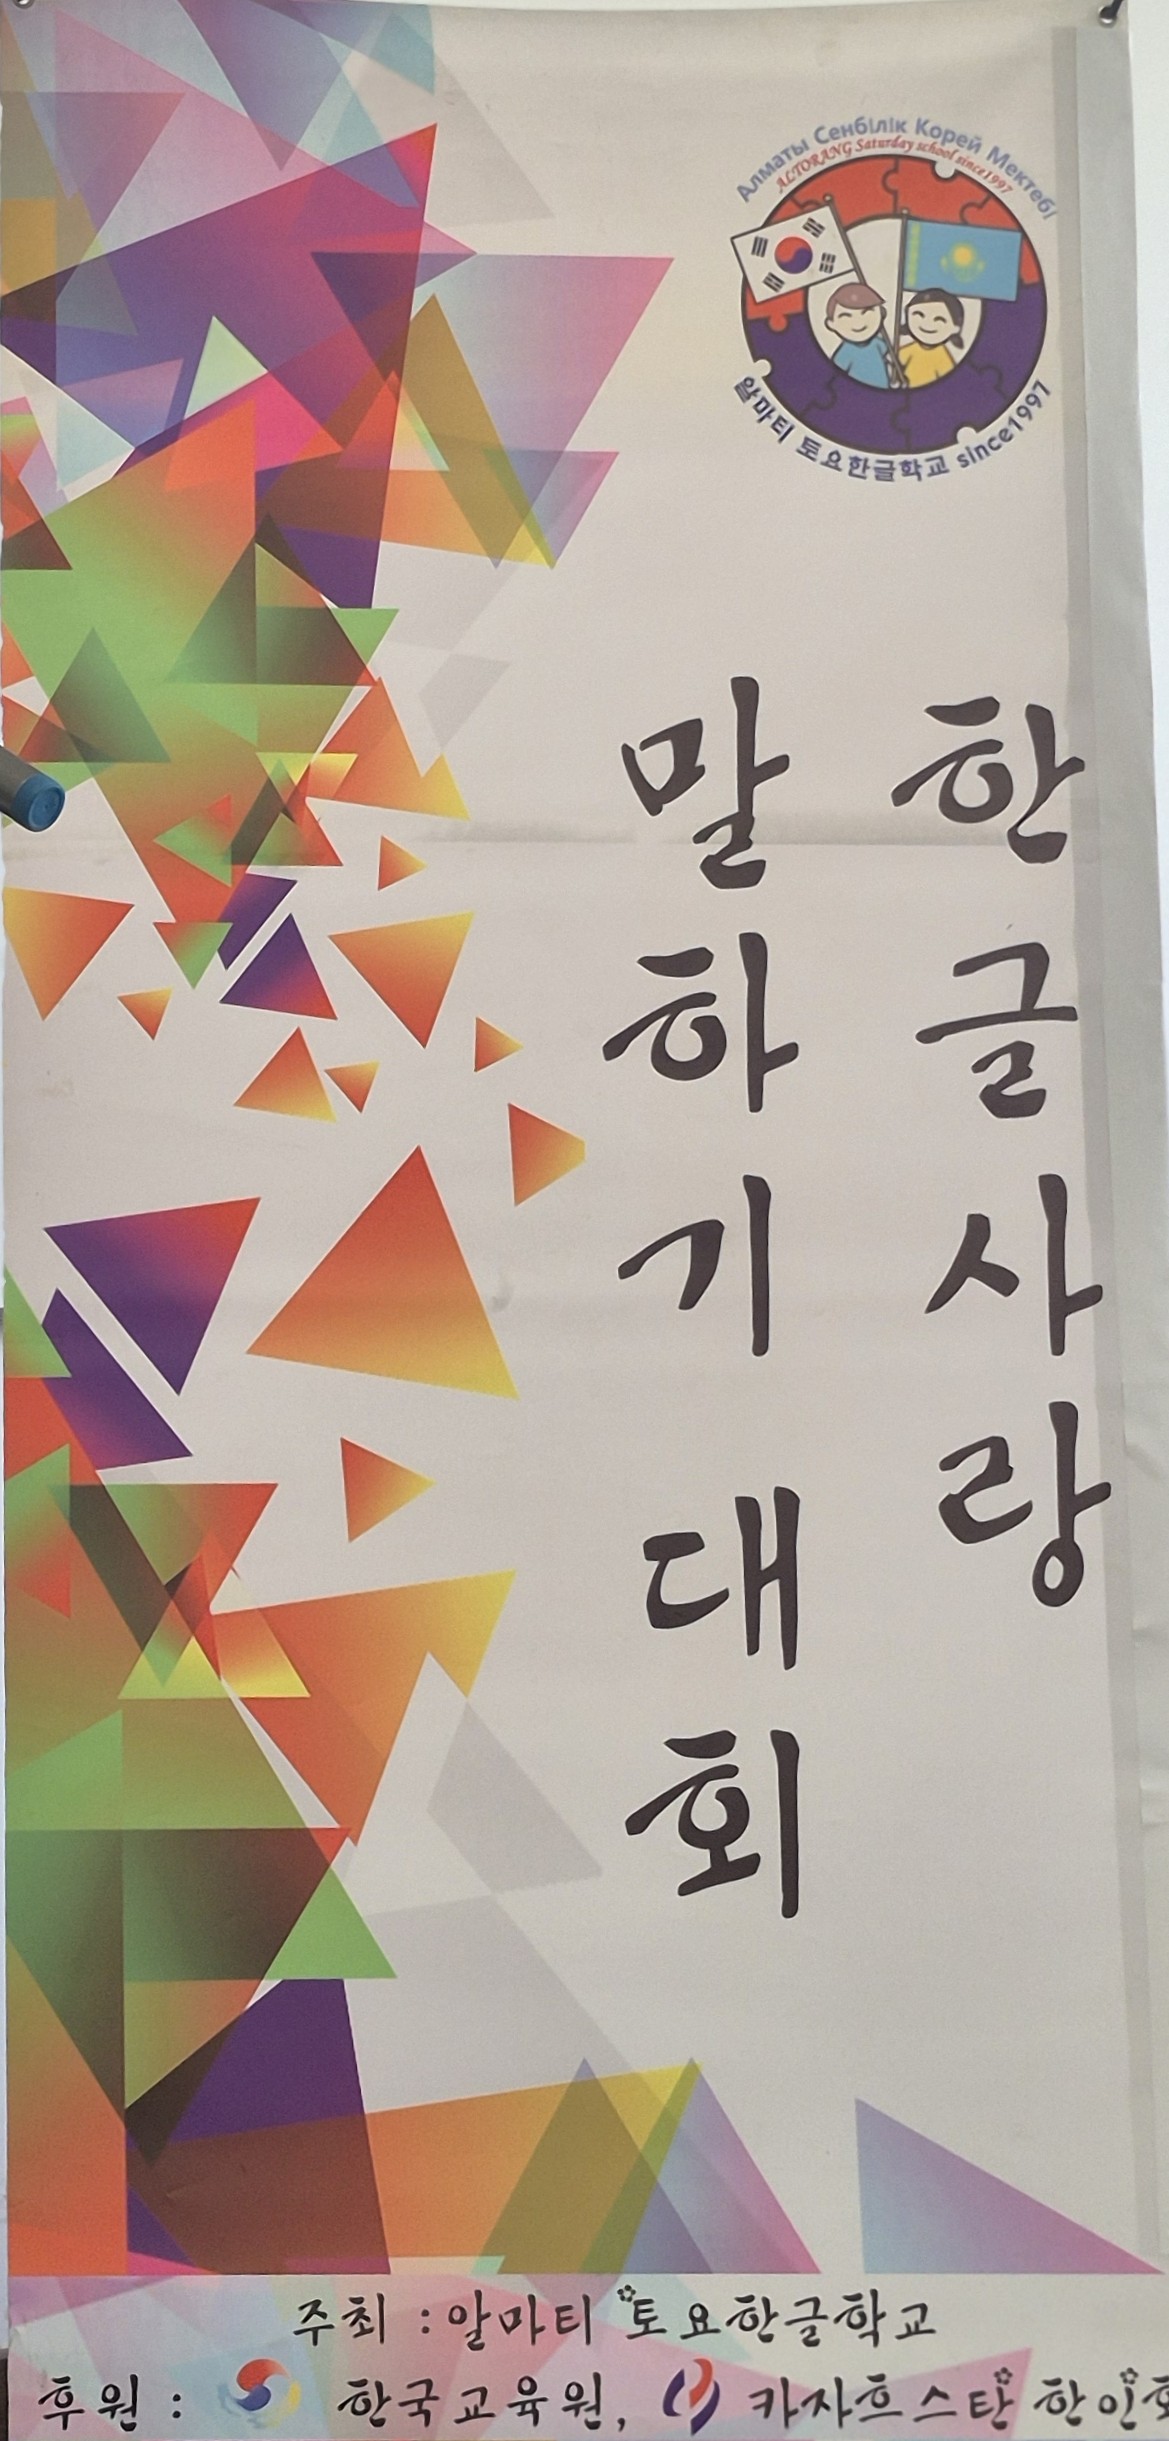 Алматы Сенбілік Корей Мектебі
ALTORANG Saturday school since1997
알마티 토요한글학교 since1997
한글사랑
말하기 대회
주최 : 알마티 토요한글학교
후원 : 한국교육원, 카자흐스탄 한인회